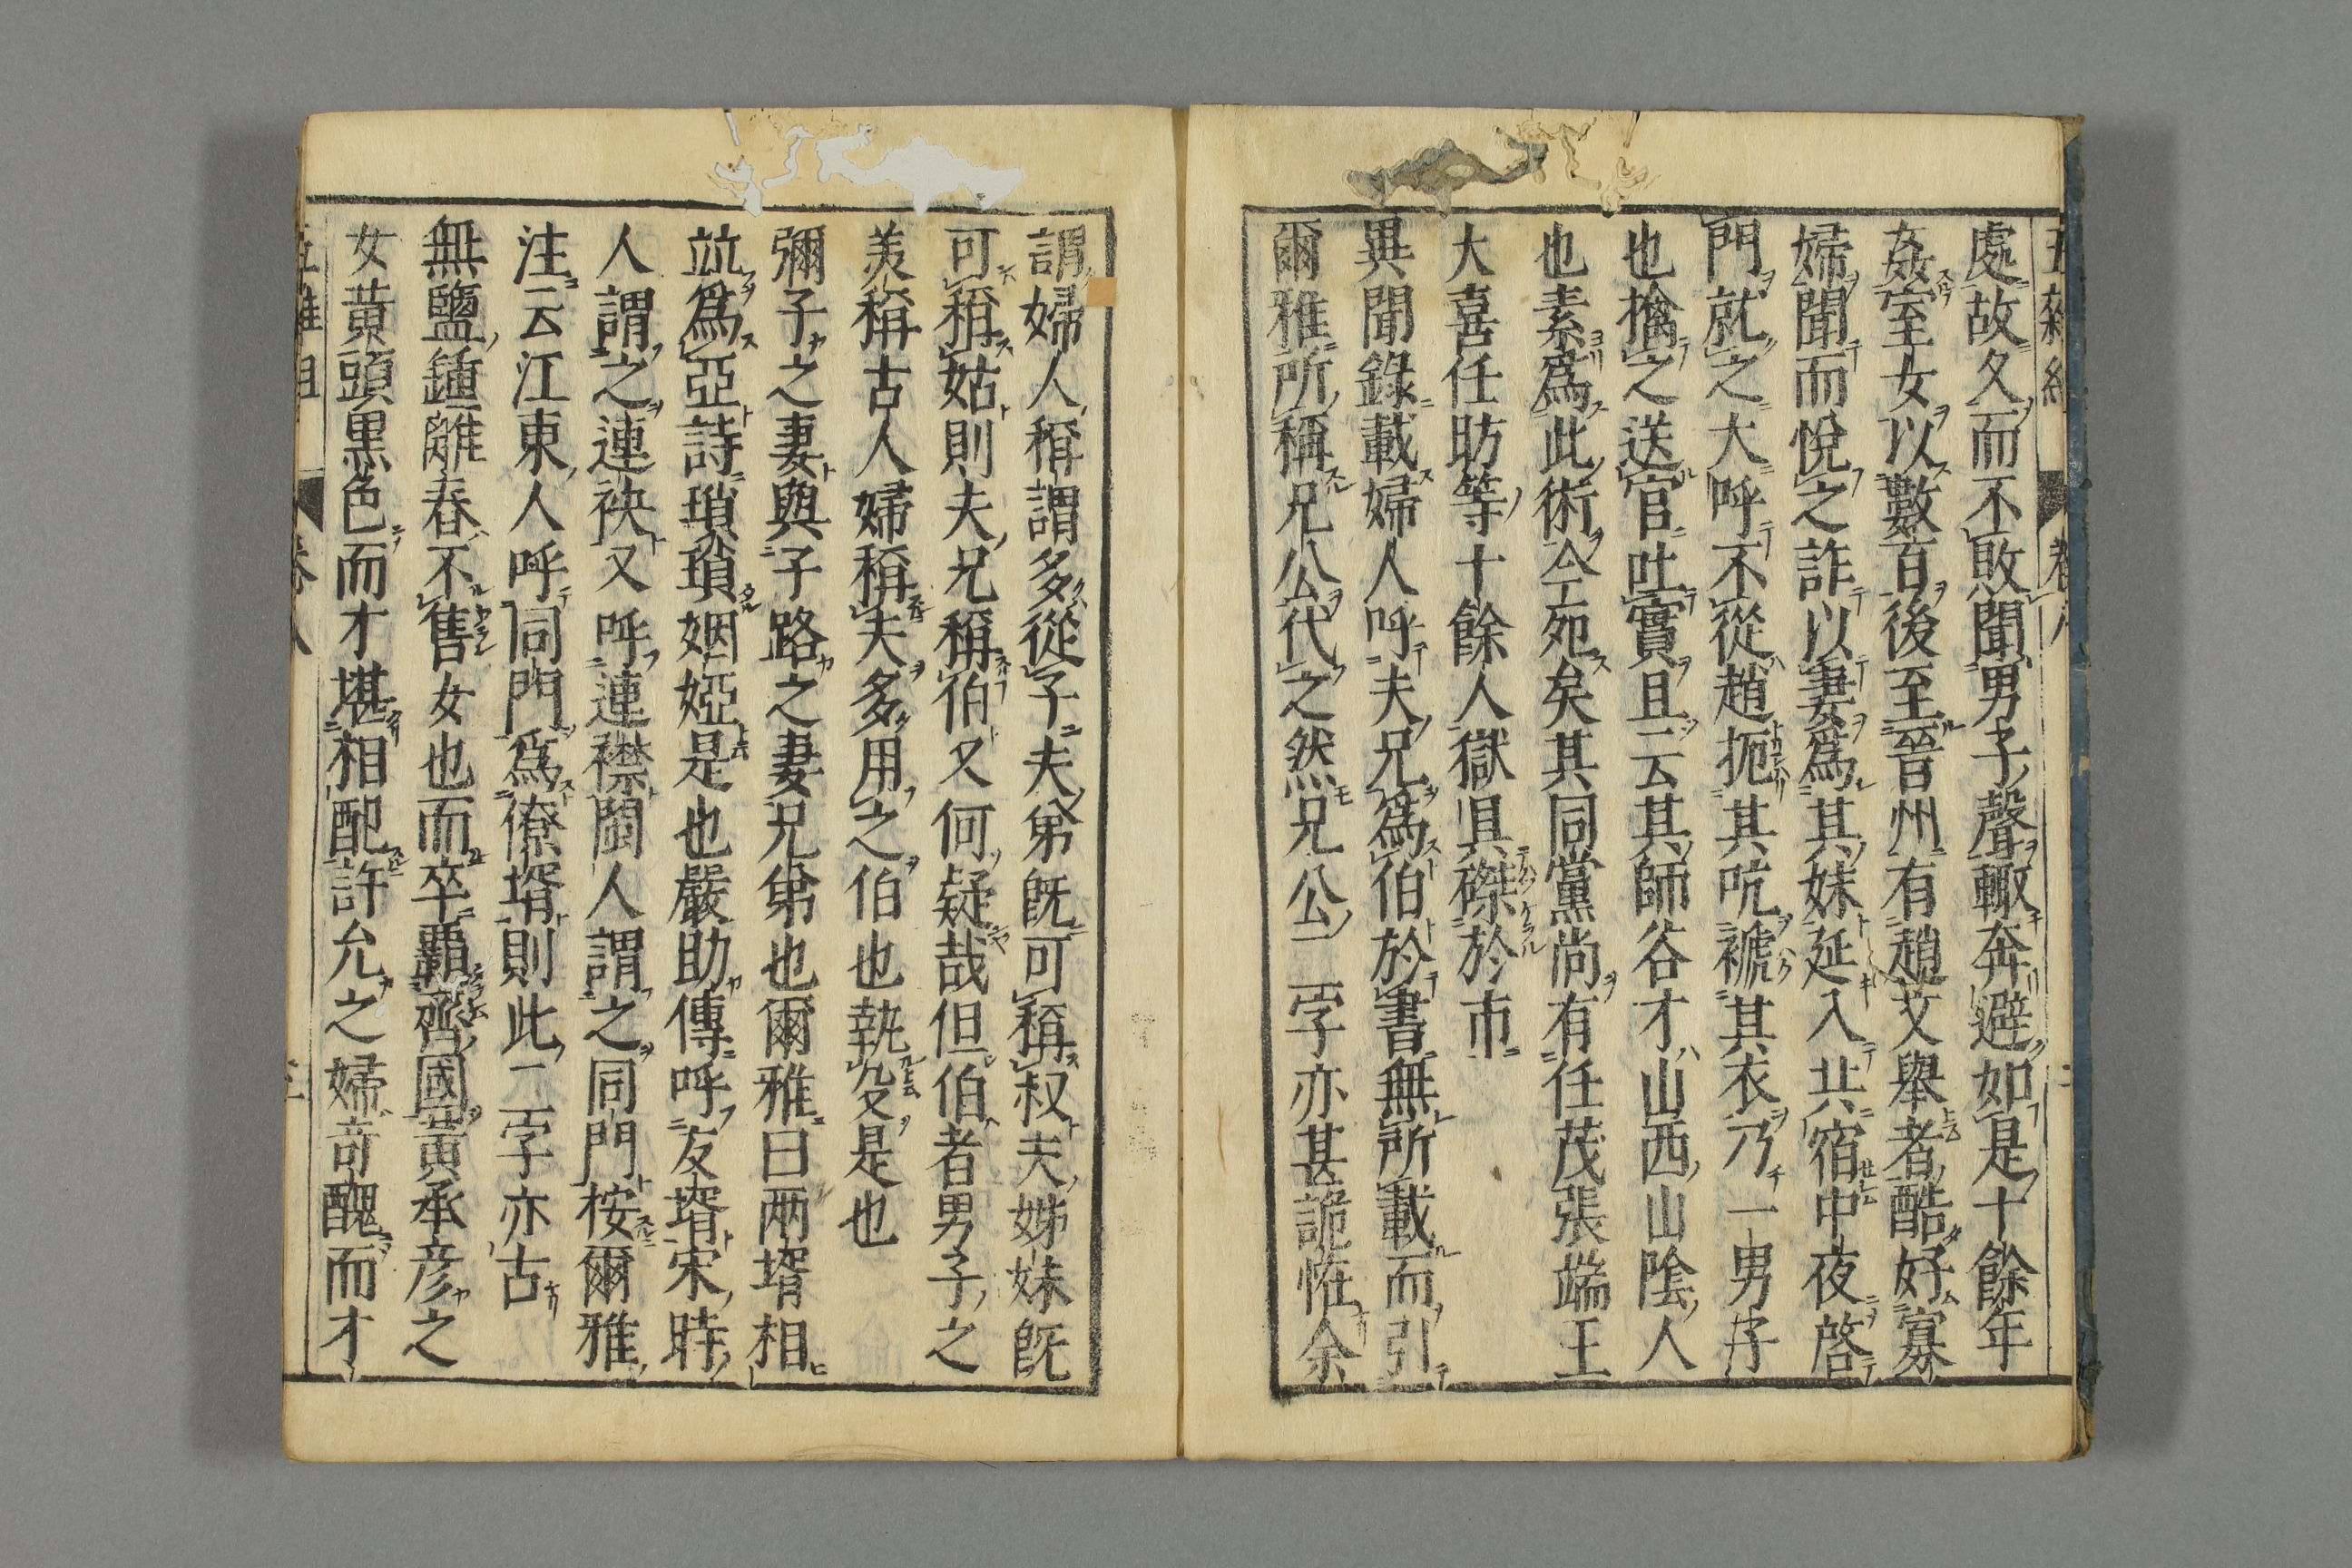 處故久而不敗聞男子聲輙奔避如是十餘年
姦室女以數百後至晉州有趙文舉者酷好寡
婦聞而悅之詐以妻爲其妹延入共宿中夜啓
門就之大呼不從趙扼其吭褫其衣乃一男子
也擒之送官吐實且云其師谷才山西山陰人
也素爲此術今死矣其同黨尚有任茂張端王
大喜任昉等十餘人獄具磔於市
異聞錄載婦人呼夫兄爲伯於書無所載而引
爾雅所稱兄公代之然兄公二字亦甚詭恠余
謂婦人稱謂多從子夫弟既可稱叔夫姊妹既
可稱姑則夫兄稱伯又何疑哉但伯者男子之
美稱古人婦稱夫多用之伯也執殳是也
彌子之妻與子路之妻兄弟也爾雅曰兩壻相
竝爲亞詩瑣瑣姻婭是也嚴助傳呼友壻宋時
人謂之連袂又呼連襟閩人謂之同門桉爾雅
注云江東人呼同門爲僚壻則此二字亦古
無鹽鍾離春不售女也而卒覇齊國黃承彦之
女黃頭黒色而才堪相配許允之婦奇醜而才
卷八